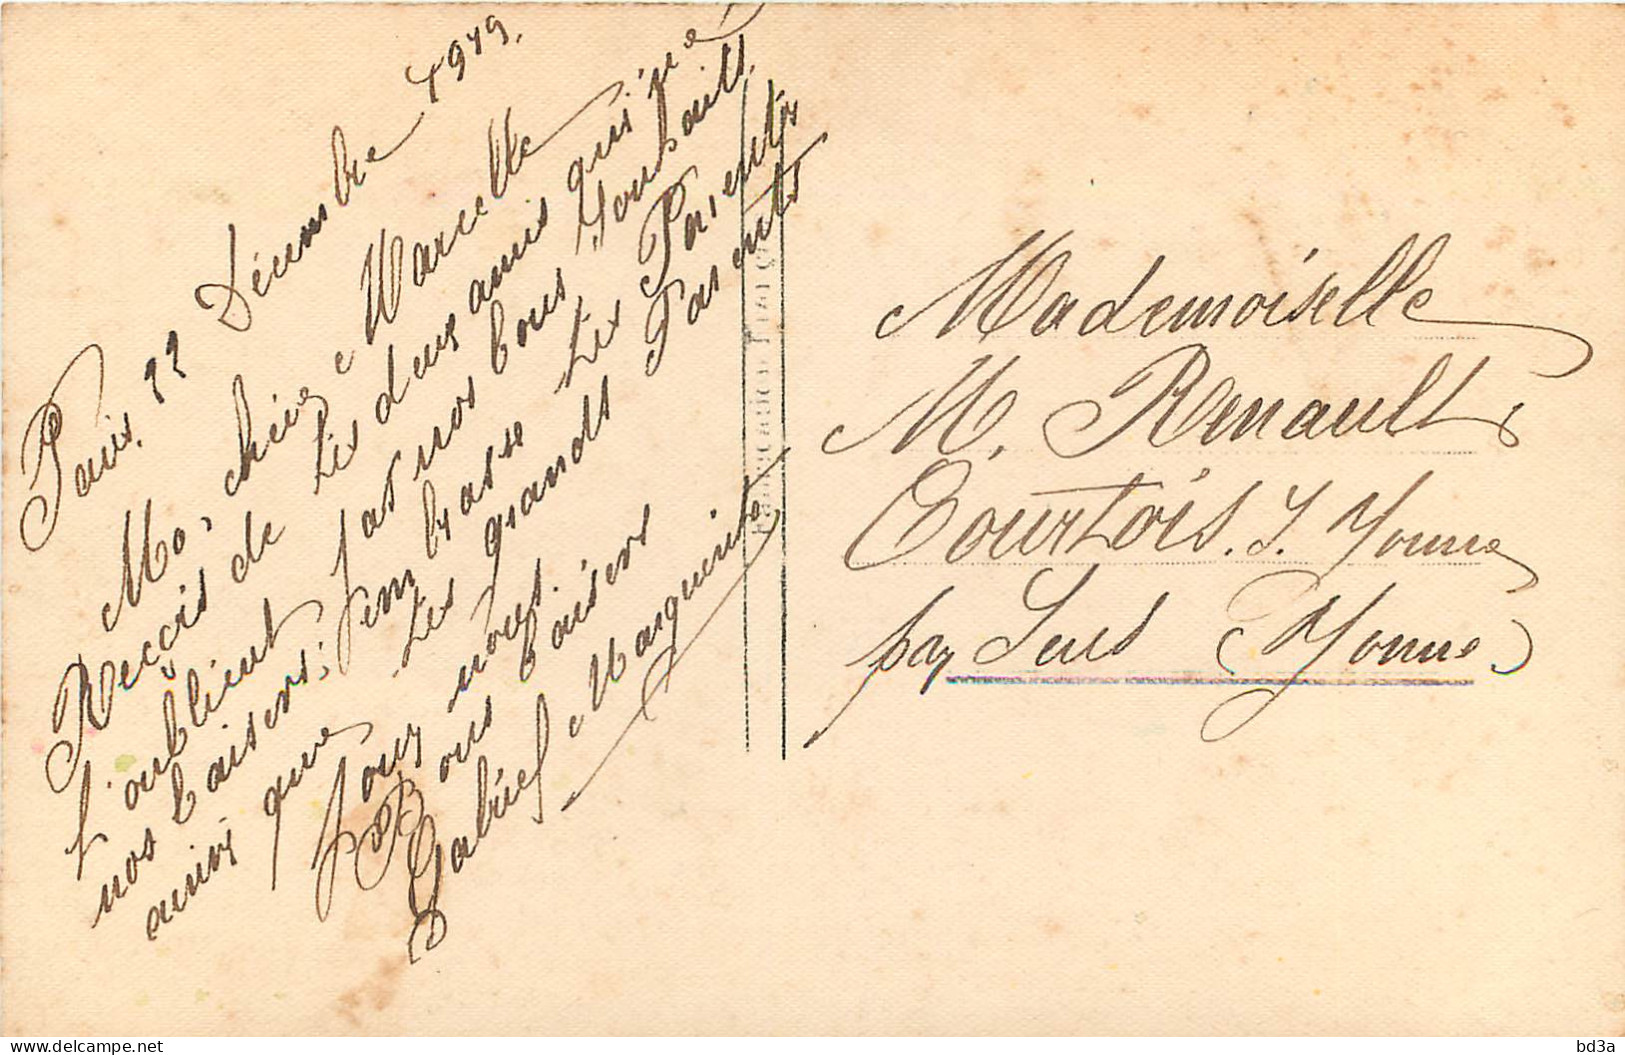 Paris, 22 Décembre 1919.
Ma chère Marcelle
Reçois de tes deux amis qui ne
t'oublient pas nos bons Souhaits
nos baisers; embrasse tes Parents
ainsi que tes grands Parents
pour nous.
Bons baisers
Gabriel Marguerite
Mademoiselle
M. Renault
Courtois. S. Yonne
par Sens (Yonne)
bd3a
delcampe.net